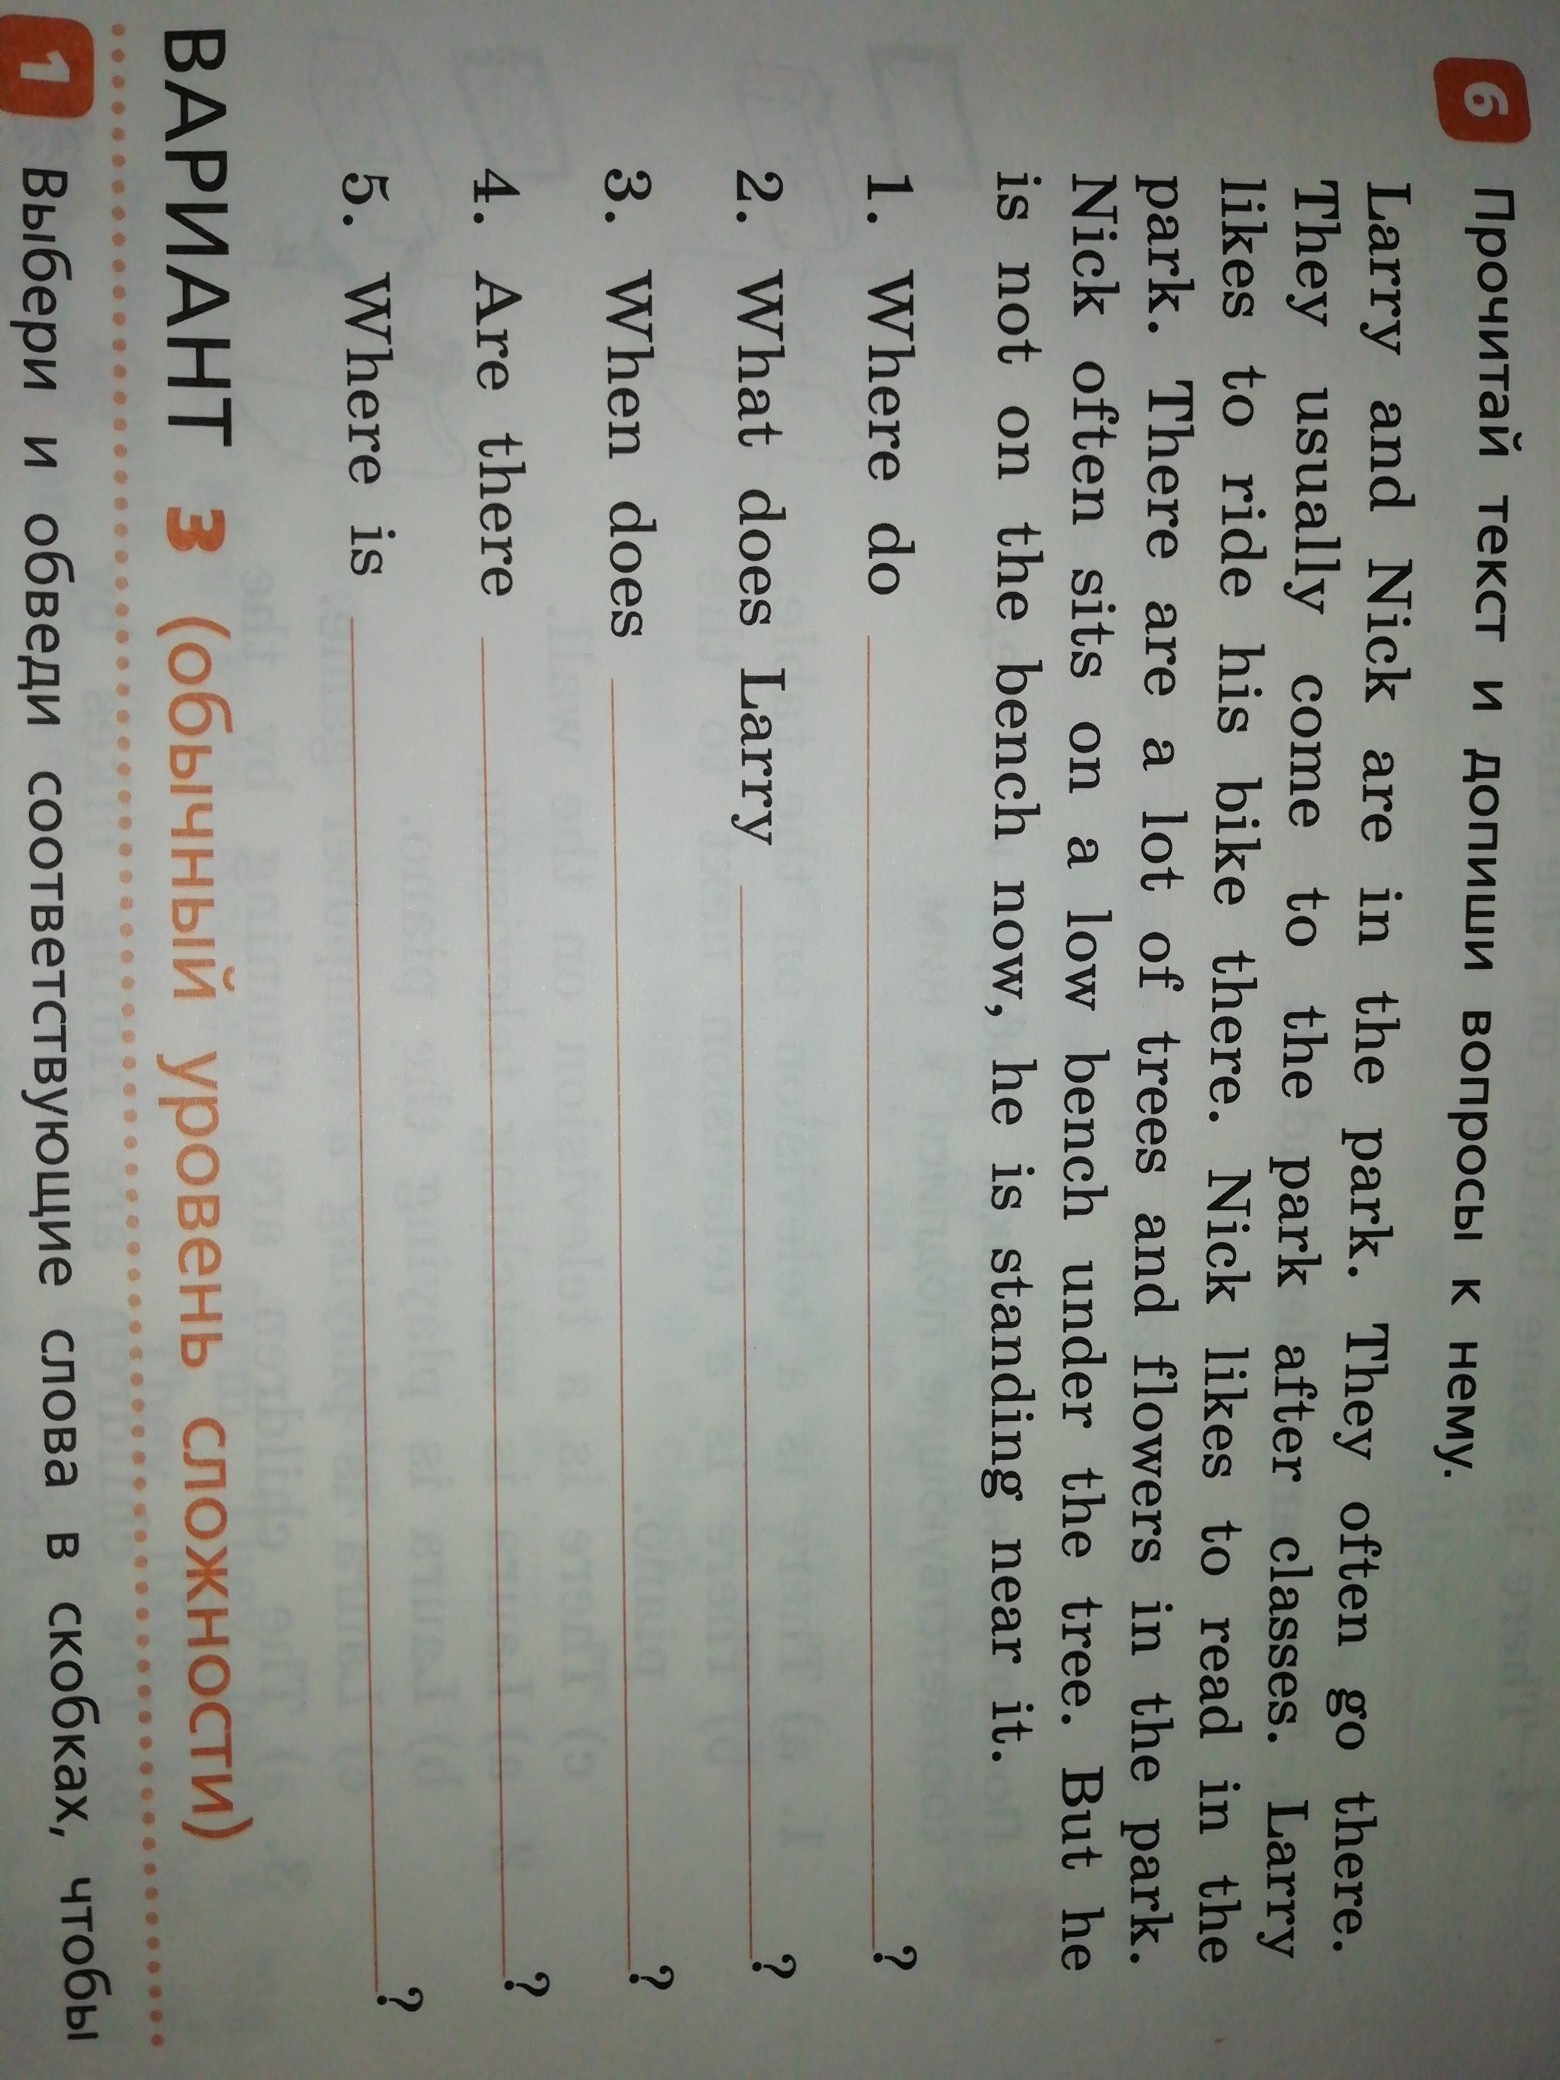 6 Прочитай текст и допиши вопросы к нему.
Larry and Nick are in the park. They often go there.
They usually come to the park after classes. Larry
likes to ride his bike there. Nick likes to read in the
park. There are a lot of trees and flowers in the park.
Nick often sits on a low bench under the tree. But he
is not on the bench now, he is standing near it.
1. Where do ?
2. What does Larry ?
3. When does ?
4. Are there ?
5. Where is ?
ВАРИАНТ 3 (обычный уровень сложности)
1 Выбери и обведи соответствующие слова в скобках, чтобы